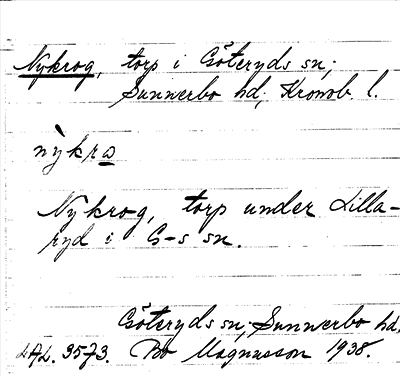 Nykrog, torp i Göteryds sn;
Sunnerbo hd; Kronob. l.
nỳkra
Nykrog, torp under Lilla-
ryd i G-s sn.
Göteryds sn; Sunnerbo hd,
LAL. 3573. Bo Magnusson 1938.